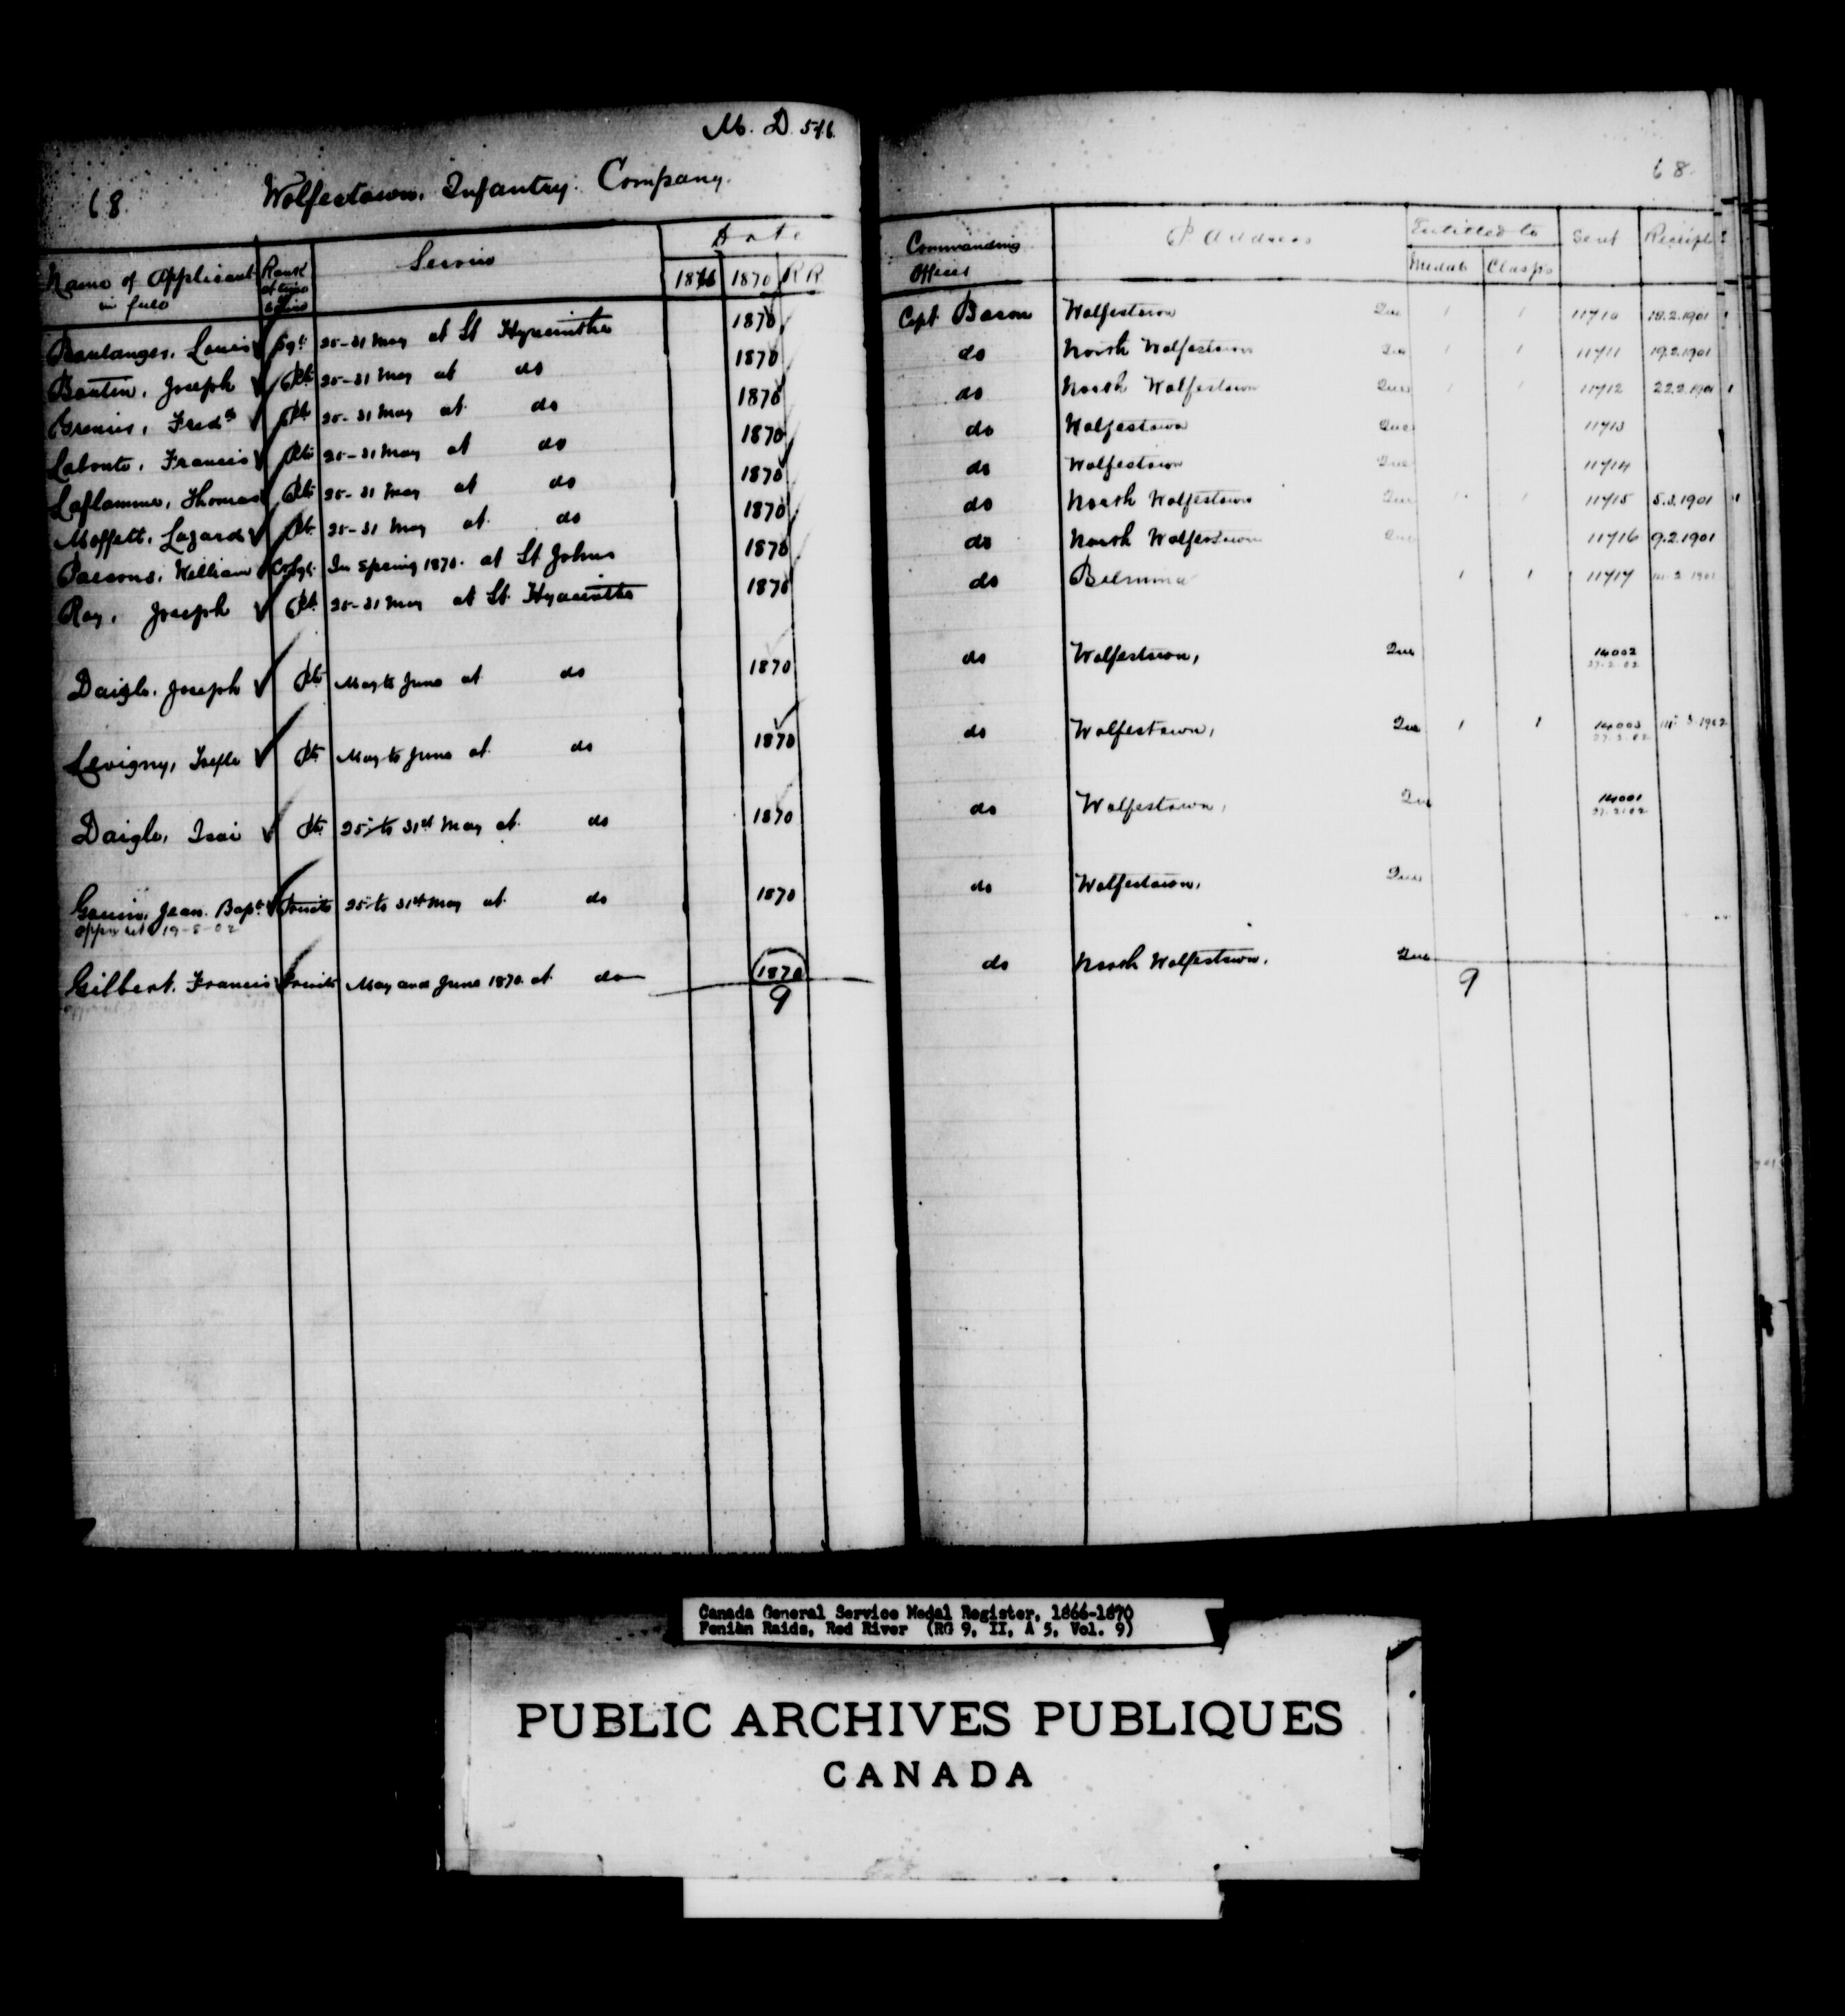 M. D. 5 & 6.
68.
Wolfestown. Infantry. Company.
68.
Name of Applicant in full
Rank at time
Service
Date
1866 1870 R R
Commanding Officer
P Address
Entitled to
Medal Clasps
Sent
Receipt
Boulanger, Louis Sgt 25-31 May at St Hyacinthe 1870 Capt. Bacon Wolfestown Que 1 1 11710 18.2.1901
Boutin, Joseph Pte 25-31 May at do 1870 do North Wolfestown Que 1 1 11711 19.2.1901
Grenier, Fred Pte 25-31 May at do 1870 do North Wolfestown Que 1 1 11712 22.2.1901
Labonte, Francis Pte 25-31 May at do 1870 do Wolfestown Que 11713
Laflamme, Thomas Pte 25-31 May at do 1870 do Wolfestown Que 11714
Moffett, Lazard Pte 25-31 May at do 1870 do North Wolfestown Que 1 1 11715 5.3.1901
Parsons, William Cr Sgt. In Spring 1870. at St Johns 1870 do North Wolfestown Que 11716 9.2.1901
Roy, Joseph Pte 25-31 May at St. Hyacinthe 1870 do 1 1 11717
Daigle, Joseph Pte May to June at do 1870 do Wolfestown, Que 14002
27.2.02
Levigny, Pte May to June at do 1870 do Wolfestown, Que 1 1 14003 3.1902
27.2.02
Daigle, Isai Pte 25th to 31st May at do 1870 do Wolfestown, Que 14001
27.2.02
Gouin, Jean Bapt. Private 25th to 31st May at do 1870 do Wolfestown, Que
19-5-02
Gilbert, Francis Private May and June 1870. at do 1870 do North Wolfestown, Que
9 9
Canada General Service Medal Register, 1866-1870
Fenian Raids, Red River (RG 9, II, A 5, Vol. 9)
PUBLIC ARCHIVES PUBLIQUES
CANADA